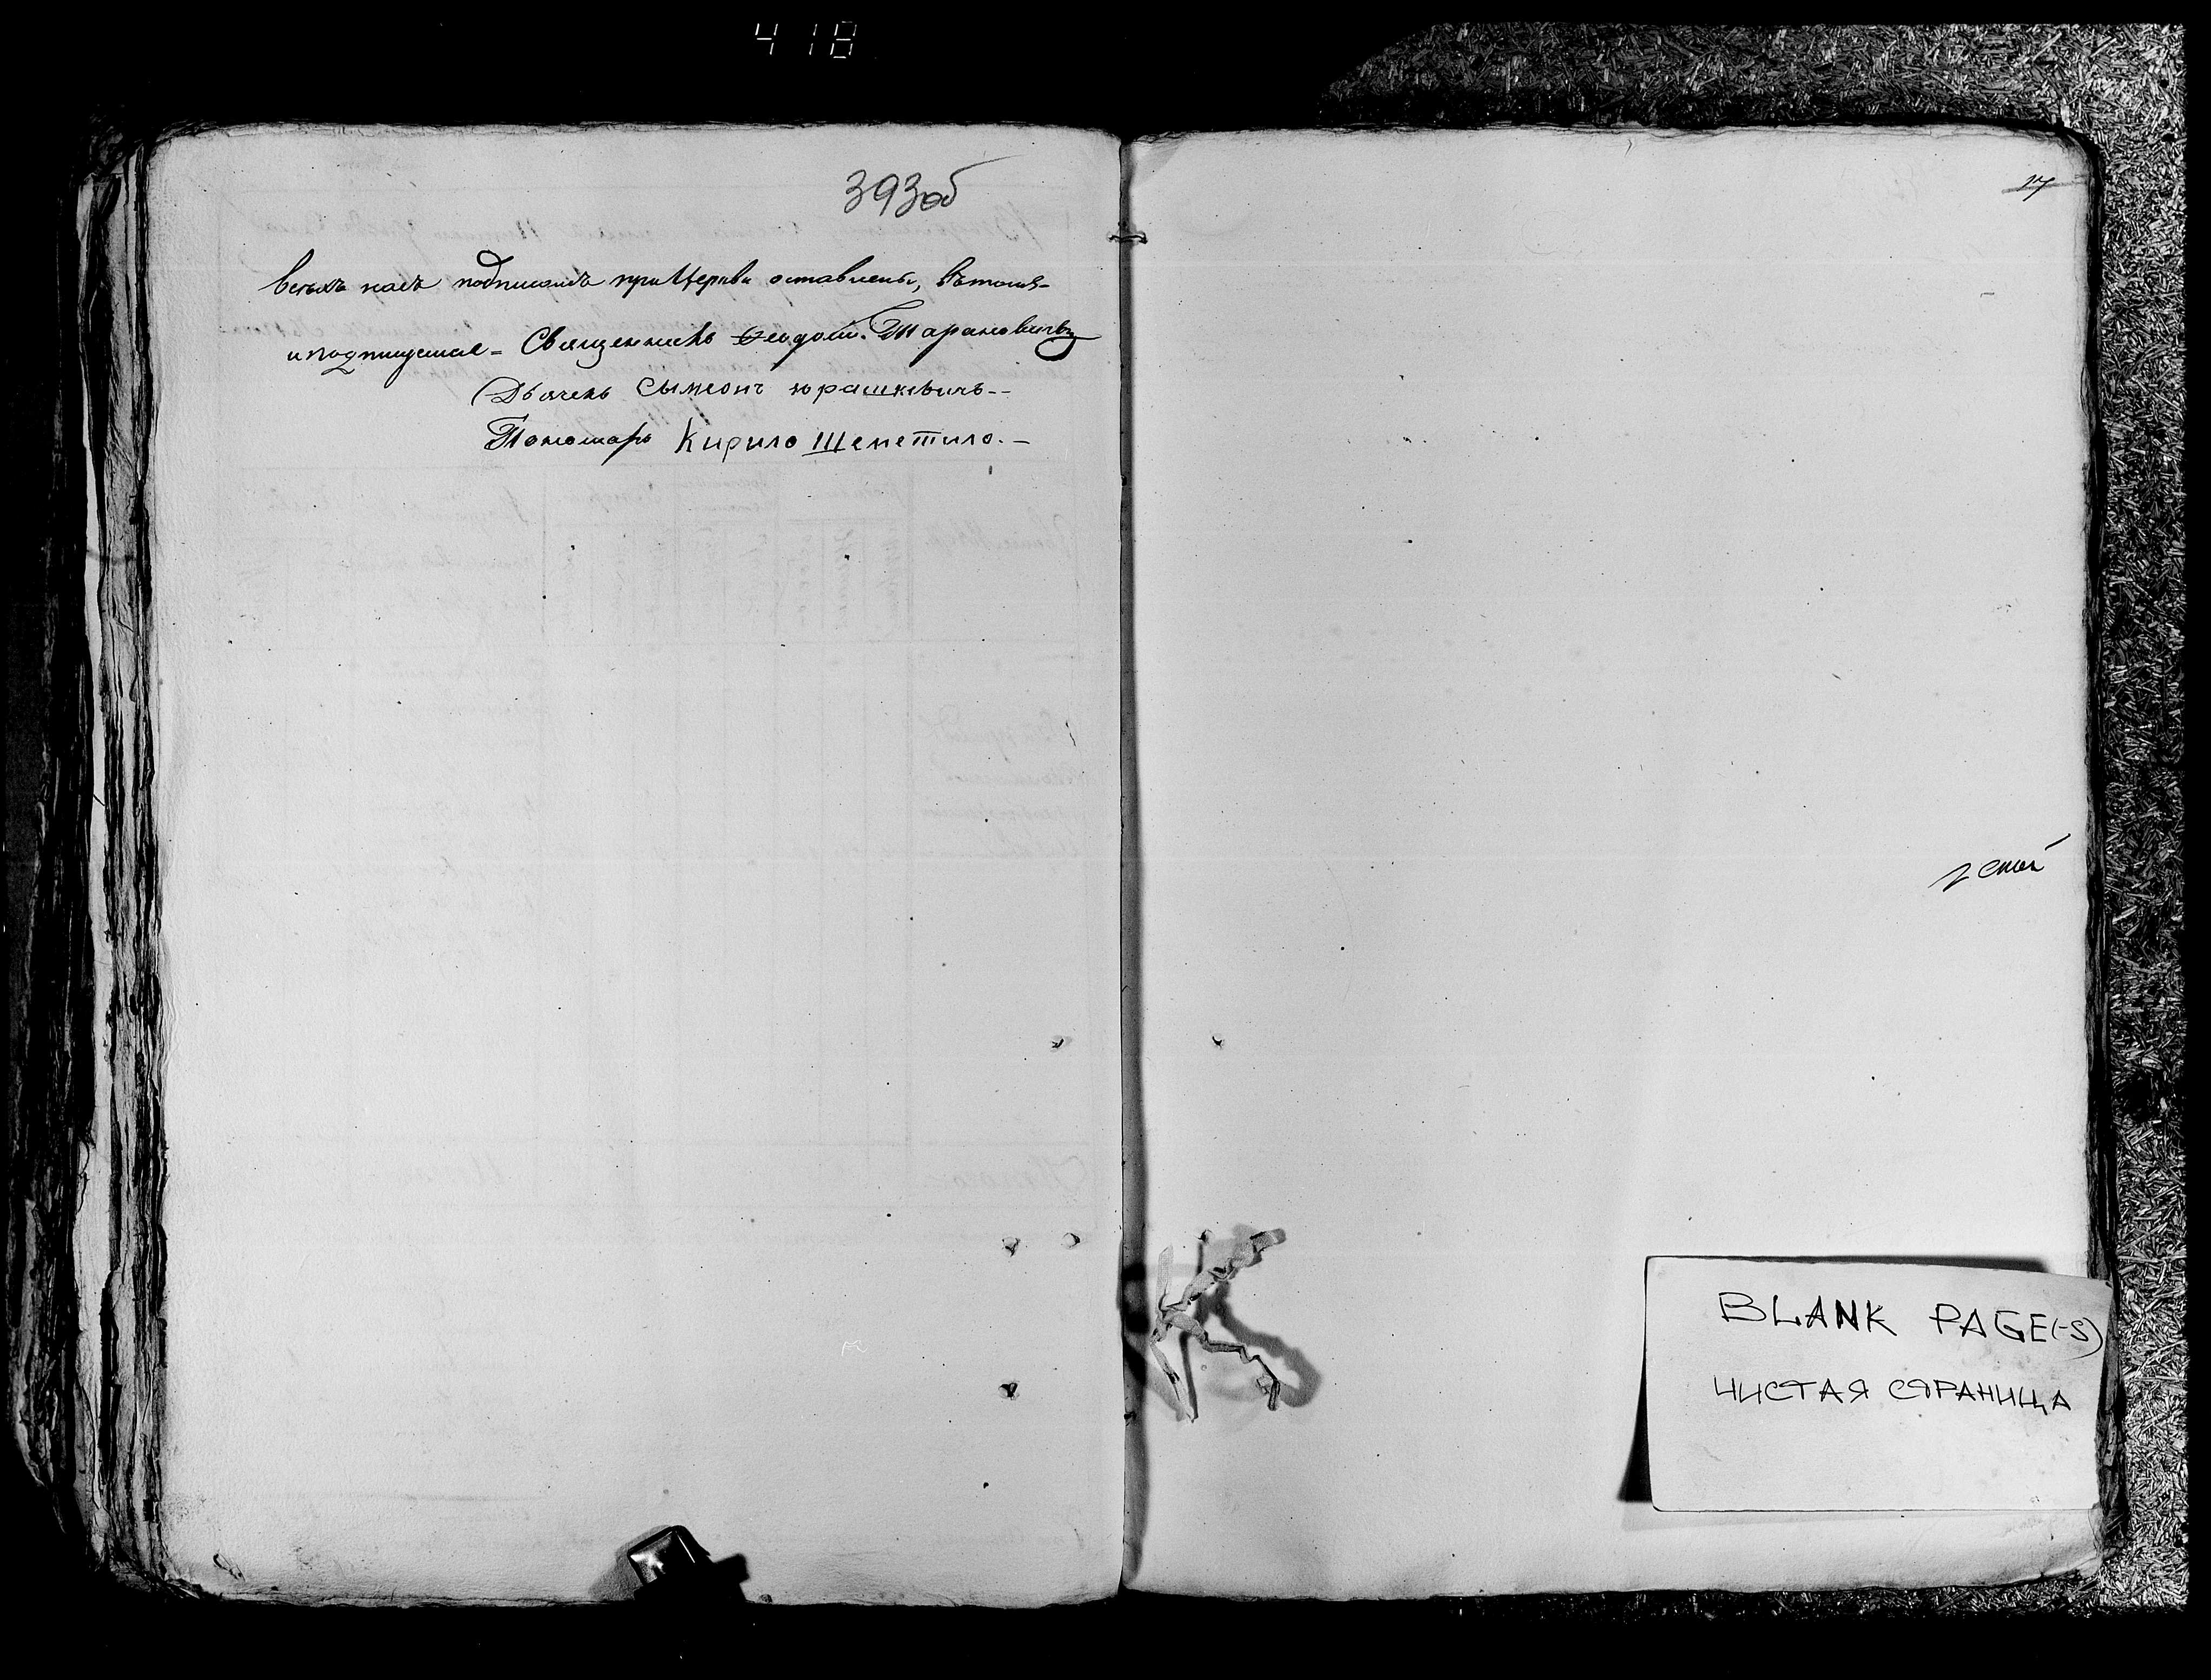 418
393об
всѣхъ насъ подписомъ при Церкви оставлены, вътомъ-
и подпишемсе = Священникъ Ѳеодосій Тарановичъ
Дьячекъ Сымеонъ Юрашкевичъ--
Пономарь Кирило Шеметило.-
17
BLANK PAGE(-S)
ЧИСТАЯ СТРАНИЦА